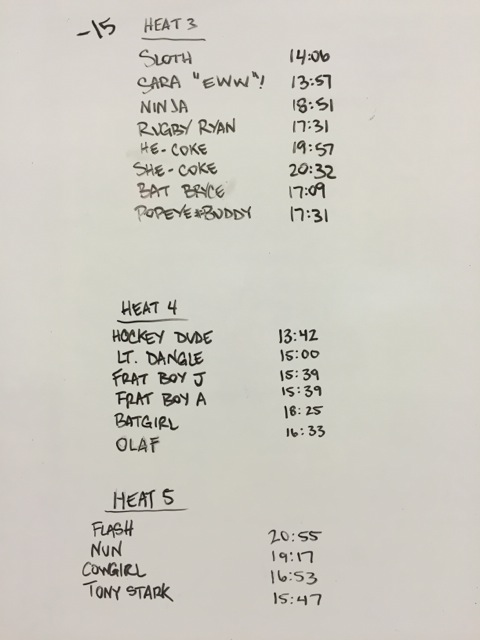 -15 HEAT 3
SLOTH 14:06
SARA "EWW"! 13:57
NINJA 18:51
RUGBY RYAN 17:31
HE-COKE 19:57
SHE-COKE 20:32
BAT BRYCE 17:09
POPEYE & BUDDY 17:31
HEAT 4
HOCKEY DUDE 13:42
LT. DANGLE 15:00
FRAT BOY J 15:39
FRAT BOY A 15:39
BATGIRL 18:25
OLAF 16:33
HEAT 5
FLASH 20:55
NUN 19:17
COWGIRL 16:53
TONY STARK 15:47